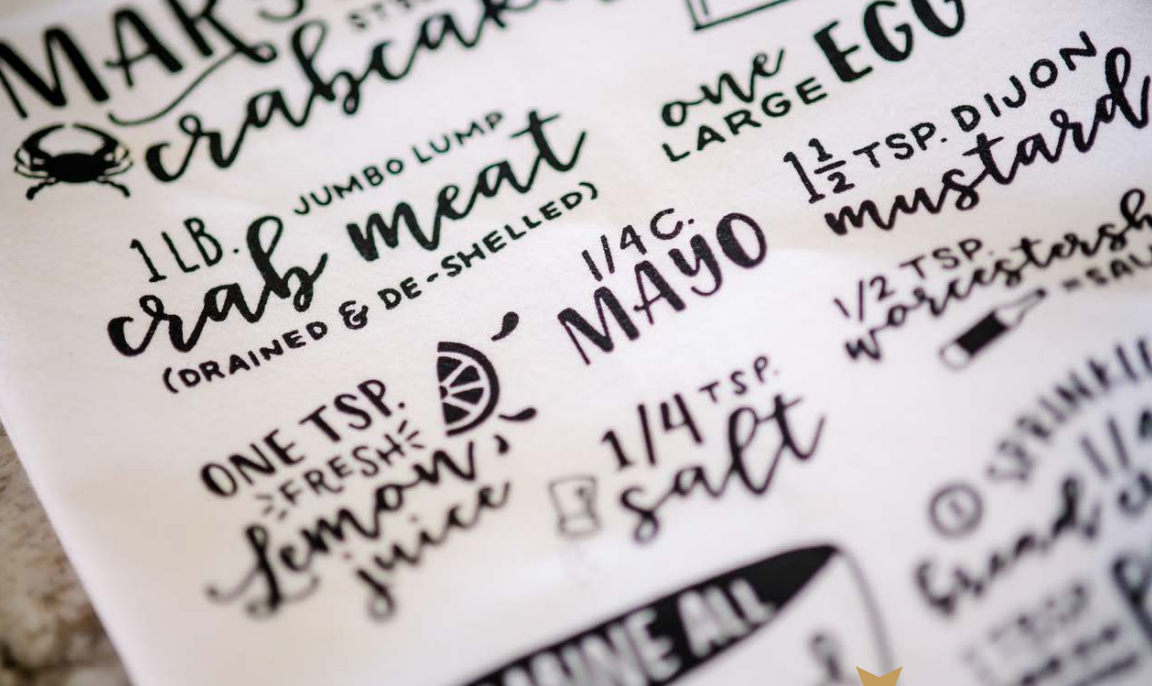 crabcak
1 LB.
JUMBO LUMP
crab meat
(DRAINED & DE-SHELLED)
one
LARGE EGG
1 1/2 TSP. DIJON
mustard
1/4 C.
MAYO
1/2 TSP.
worcestersh
ONE TSP.
FRESH
Lemon
juice
1/4 TSP.
salt
① SPRINKL
ALL